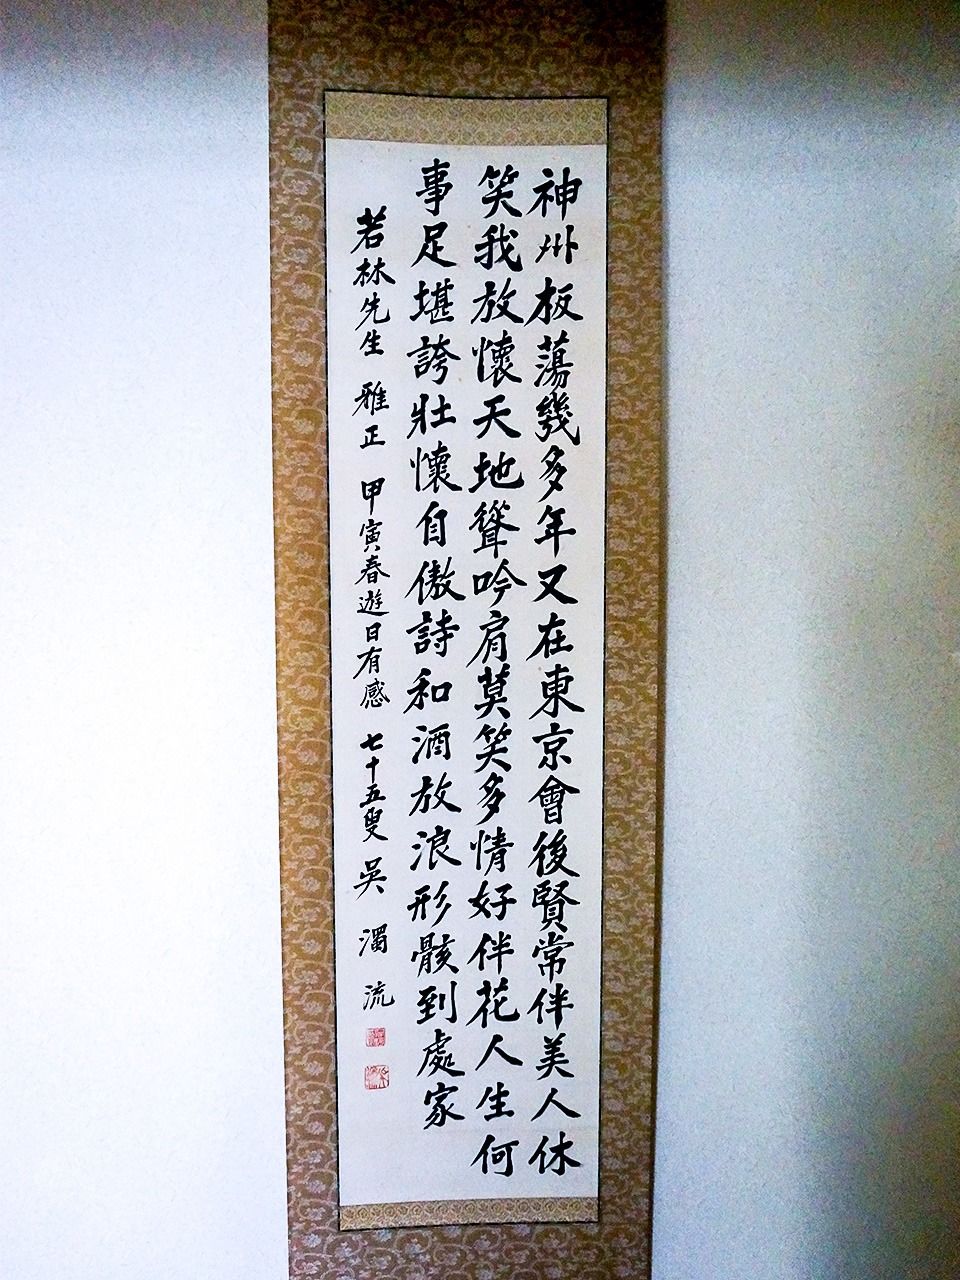 神州板蕩幾多年又在東京會後賢常伴美人休
笑我放懷天地聳吟肩莫笑多情好伴花人生何
事足堪誇壯懷自傲詩和酒放浪形骸到處家
若林先生 雅正 甲寅春遊日有感 七十五叟 吳濁流